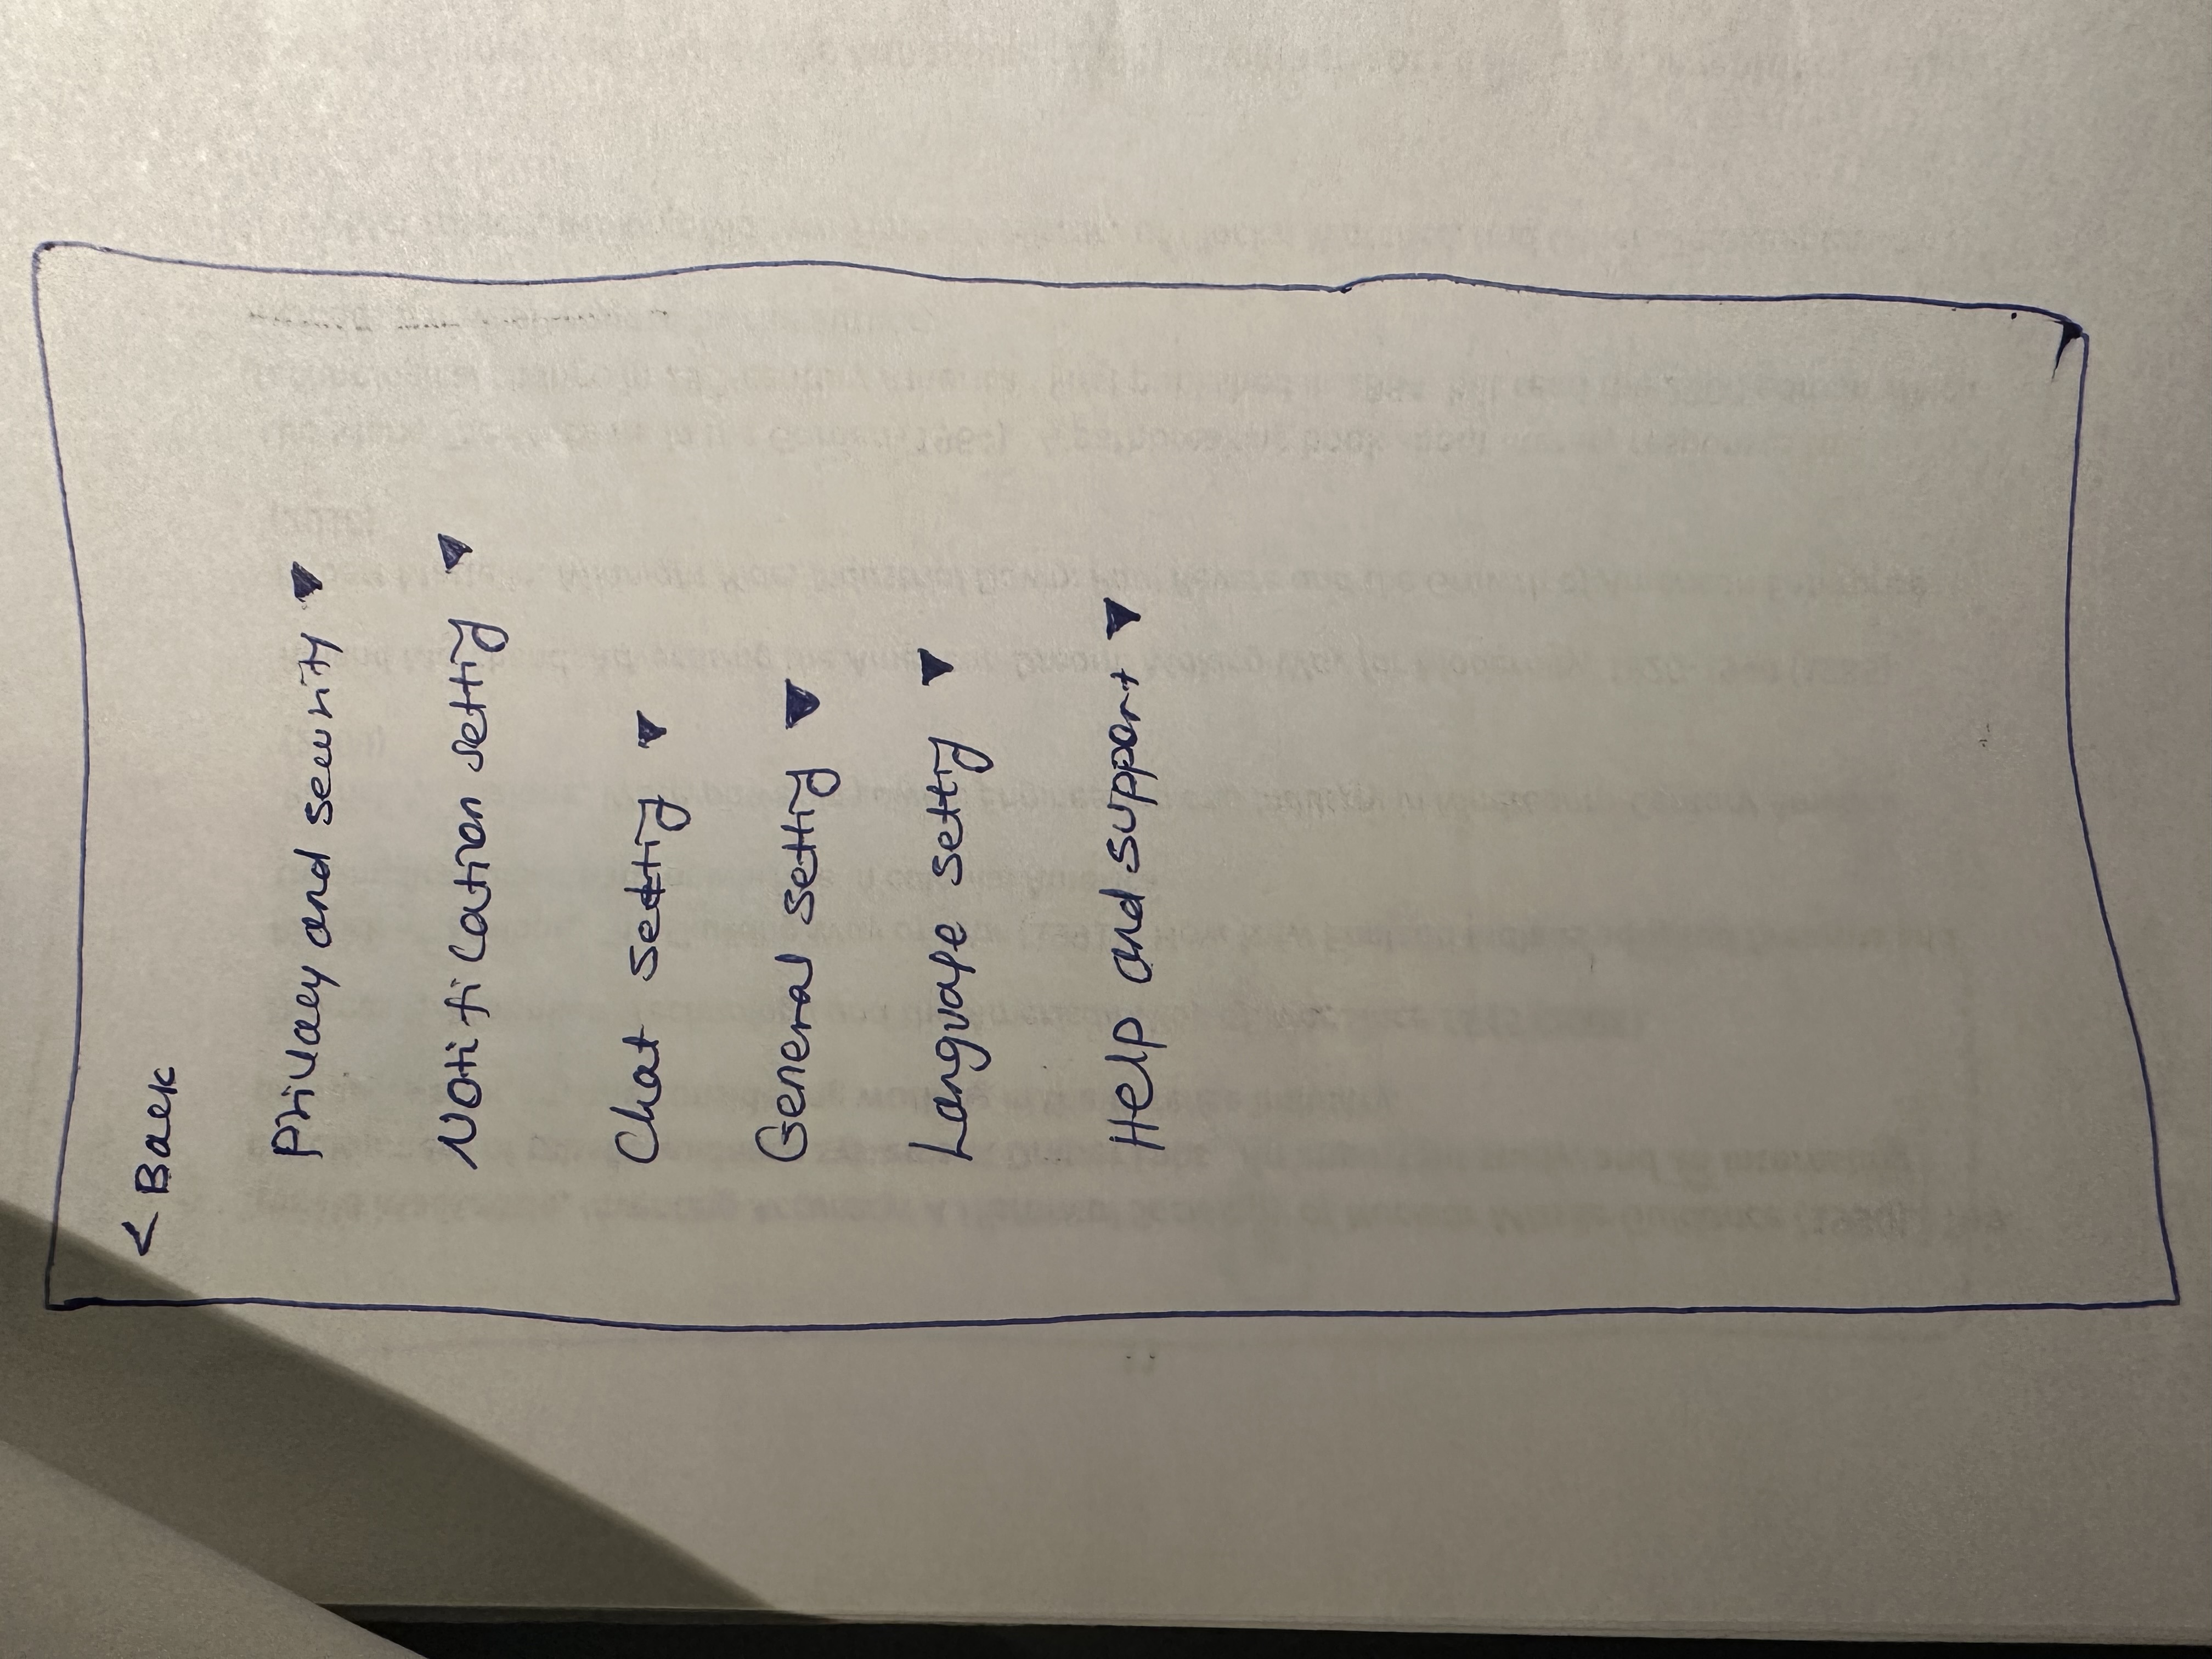 < Back
Privacy and security ▼
Notification setting ▼
Chat setting ▼
General setting ▼
Language setting ▼
Help and support ▼